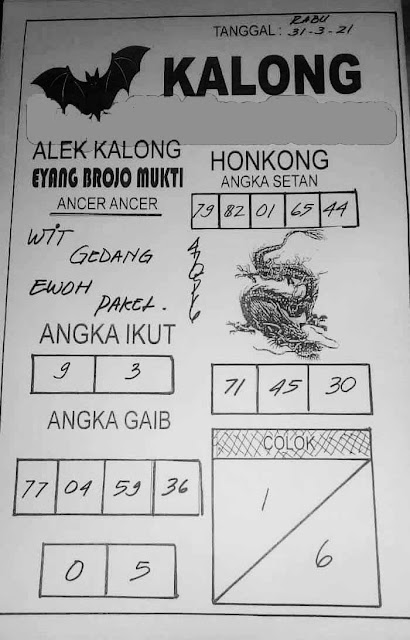 RABU
TANGGAL : 31-3-21
KALONG
ALEK KALONG
EYANG BROJO MUKTI
ANCER ANCER
WIT
GEDANG
EWOH
PAKEL.
ANGKA IKUT
9 3
ANGKA GAIB
77 04 59 36
0 5
HONKONG
ANGKA SETAN
79 82 01 65 44
71 45 30
COLOK
1
6